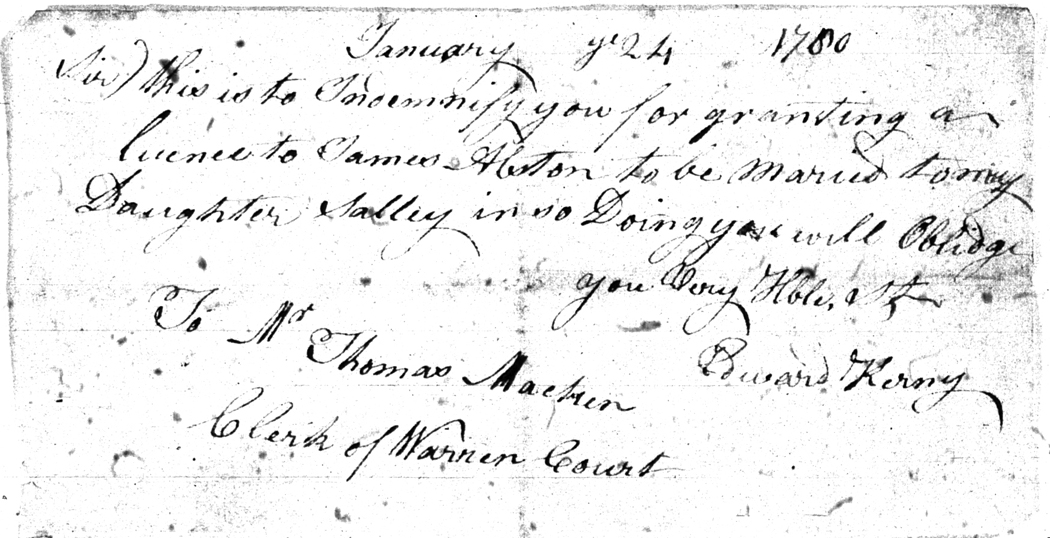 January ye 24 1780
Sir) this is to Indemnify you for granting a
licence to James Alston to be Maried to my
Daughter Salley in so Doing you will Oblidge
you Very Hble, St
To Mr Thomas Machen Edward Kerny
Clerk of Warren Court